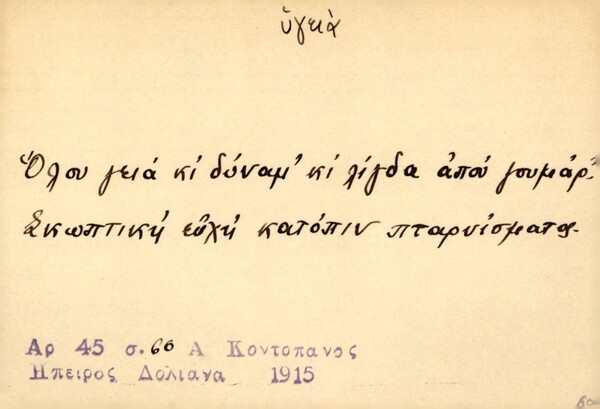 ὑγειὰ
Ὅλου γειά κί δύναμ' κί λίγδα ἀπού γουμάρ'
Σκωπτική εὐχή κατόπιν πταρνίσματος.
Αρ 45 σ. 60 Α Κοντοπανος
Ηπειρος Δολιανα 1915
60